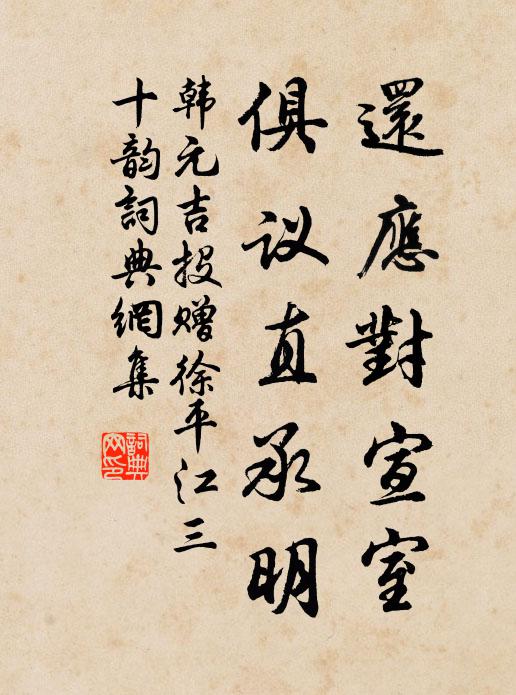 還應對宣室
俱议直承明
韩元吉投赠徐平江三
十韵詞典網集
詞典网印